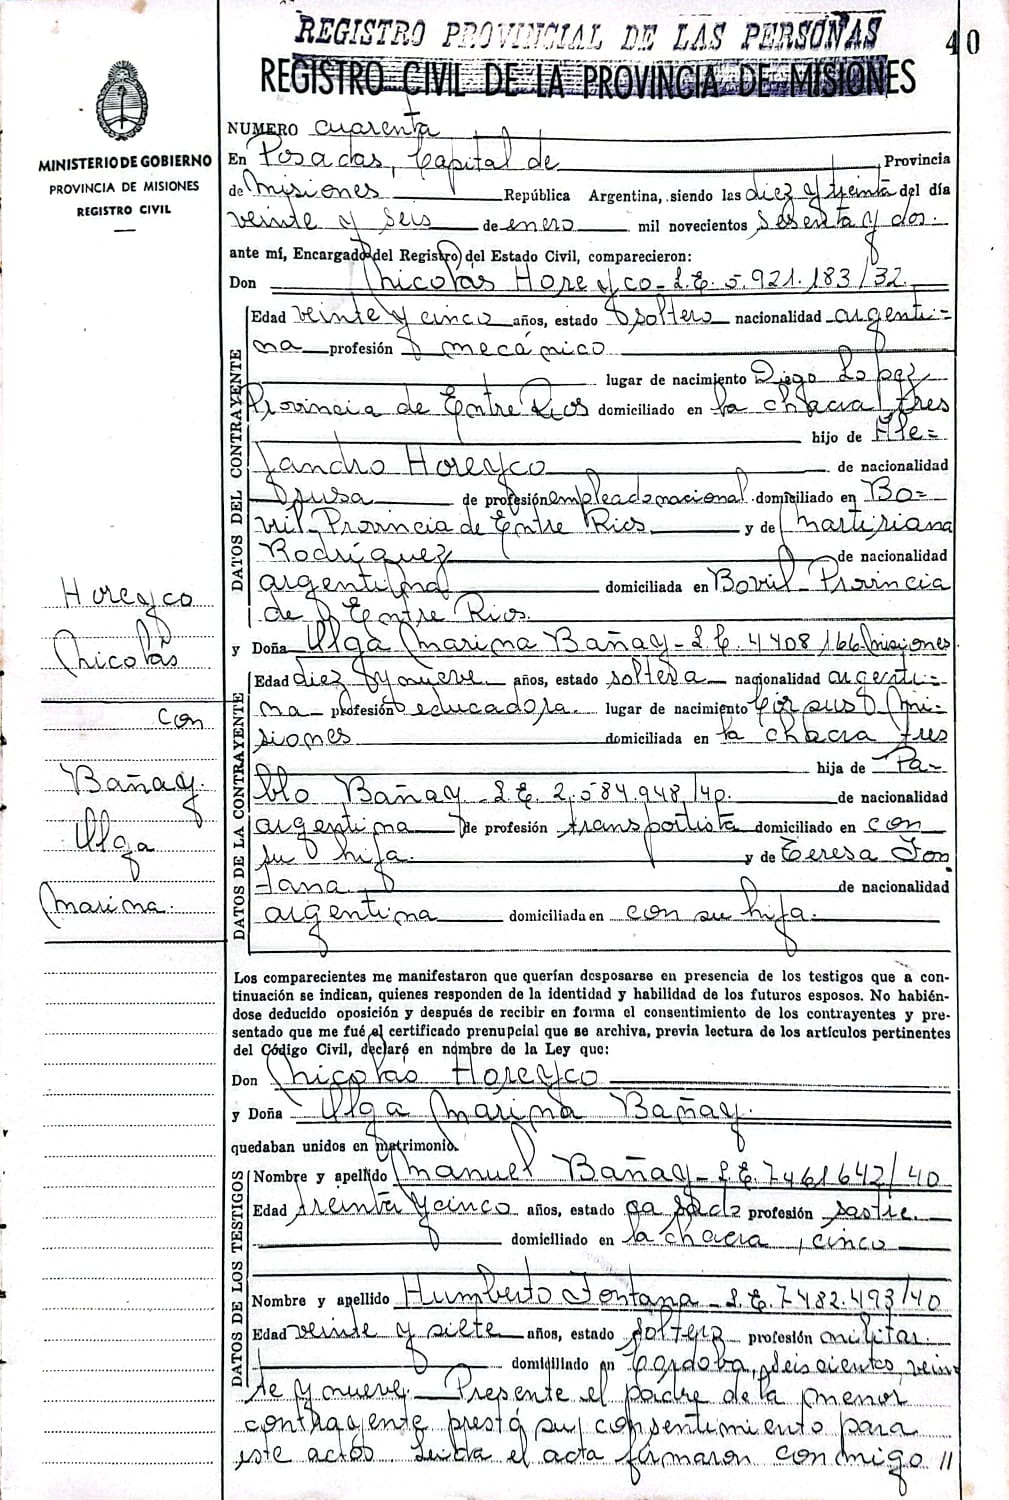 REGISTRO PROVINCIAL DE LAS PERSONAS
40
REGISTRO CIVIL DE LA PROVINCIA DE MISIONES
MINISTERIO DE GOBIERNO
PROVINCIA DE MISIONES
REGISTRO CIVIL
NUMERO cuarenta
En Posadas, Capital de Provincia
de Misiones República Argentina, siendo las diez y treinta del día
veinte y seis de enero mil novecientos sesenta y dos.
ante mí, Encargado del Registro del Estado Civil, comparecieron:
Don Nicolás Horeyco - L.E. 5.921.183/32.
DATOS DEL CONTRAYENTE
Edad veinte y cinco años, estado soltero nacionalidad argenti=
na profesión mecánico
lugar de nacimiento Diego Lopez
Provincia de Entre Rios domiciliado en la chacra tres
hijo de Ale=
jandro Horeyco de nacionalidad
rusa de profesión empleado nacional domiciliado en Bo=
vril - Provincia de Entre Rios y de Martiriana
Rodríguez de nacionalidad
argentina domiciliada en Bovril - Provincia
de Entre Rios.
y Doña Olga Marina Bañay - L.C. 4408166 Misiones
DATOS DE LA CONTRAYENTE
Edad diez y nueve años, estado soltera nacionalidad argenti=
na profesión educadora. lugar de nacimiento Corpus Mi=
siones domiciliada en la chacra tres
hija de Pa=
blo Bañay - L.E. 2.584.948/40. de nacionalidad
argentina de profesión transportista domiciliado en con
su hija. y de Teresa Fon
tana de nacionalidad
argentina domiciliada en con su hija.
Horeyco
Nicolás
con
Bañay.
Olga
Marina.
Los comparecientes me manifestaron que querían desposarse en presencia de los testigos que a con-
tinuación se indican, quienes responden de la identidad y habilidad de los futuros esposos. No habién-
dose deducido oposición y después de recibir en forma el consentimiento de los contrayentes y pre-
sentado que me fué el certificado prenupcial que se archiva, previa lectura de los artículos pertinentes
del Código Civil, declaré en nombre de la Ley que:
Don Nicolás Horeyco
y Doña Olga Marina Bañay.
quedaban unidos en matrimonio.
DATOS DE LOS TESTIGOS
Nombre y apellido Manuel Bañay - L.E. 7461642/40
Edad treinta y cinco años, estado casado profesión sastre.
domiciliado en la chacra cinco
Nombre y apellido Humberto Fontana - L.E. 7482.493/40
Edad veinte y siete años, estado soltero profesión militar.
domiciliado en Córdoba, seiscientos vein
te y nueve. Presente el padre de la menor
contrayente prestó su consentimiento para
este acto. Leida el acta firmaron conmigo //